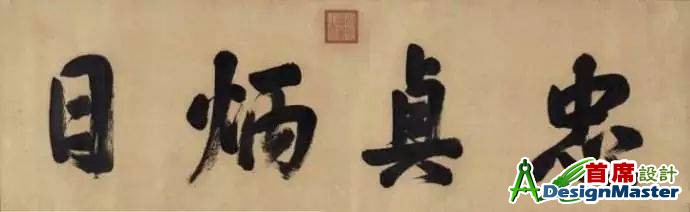 忠貞炳日
首席設計
DesignMaster